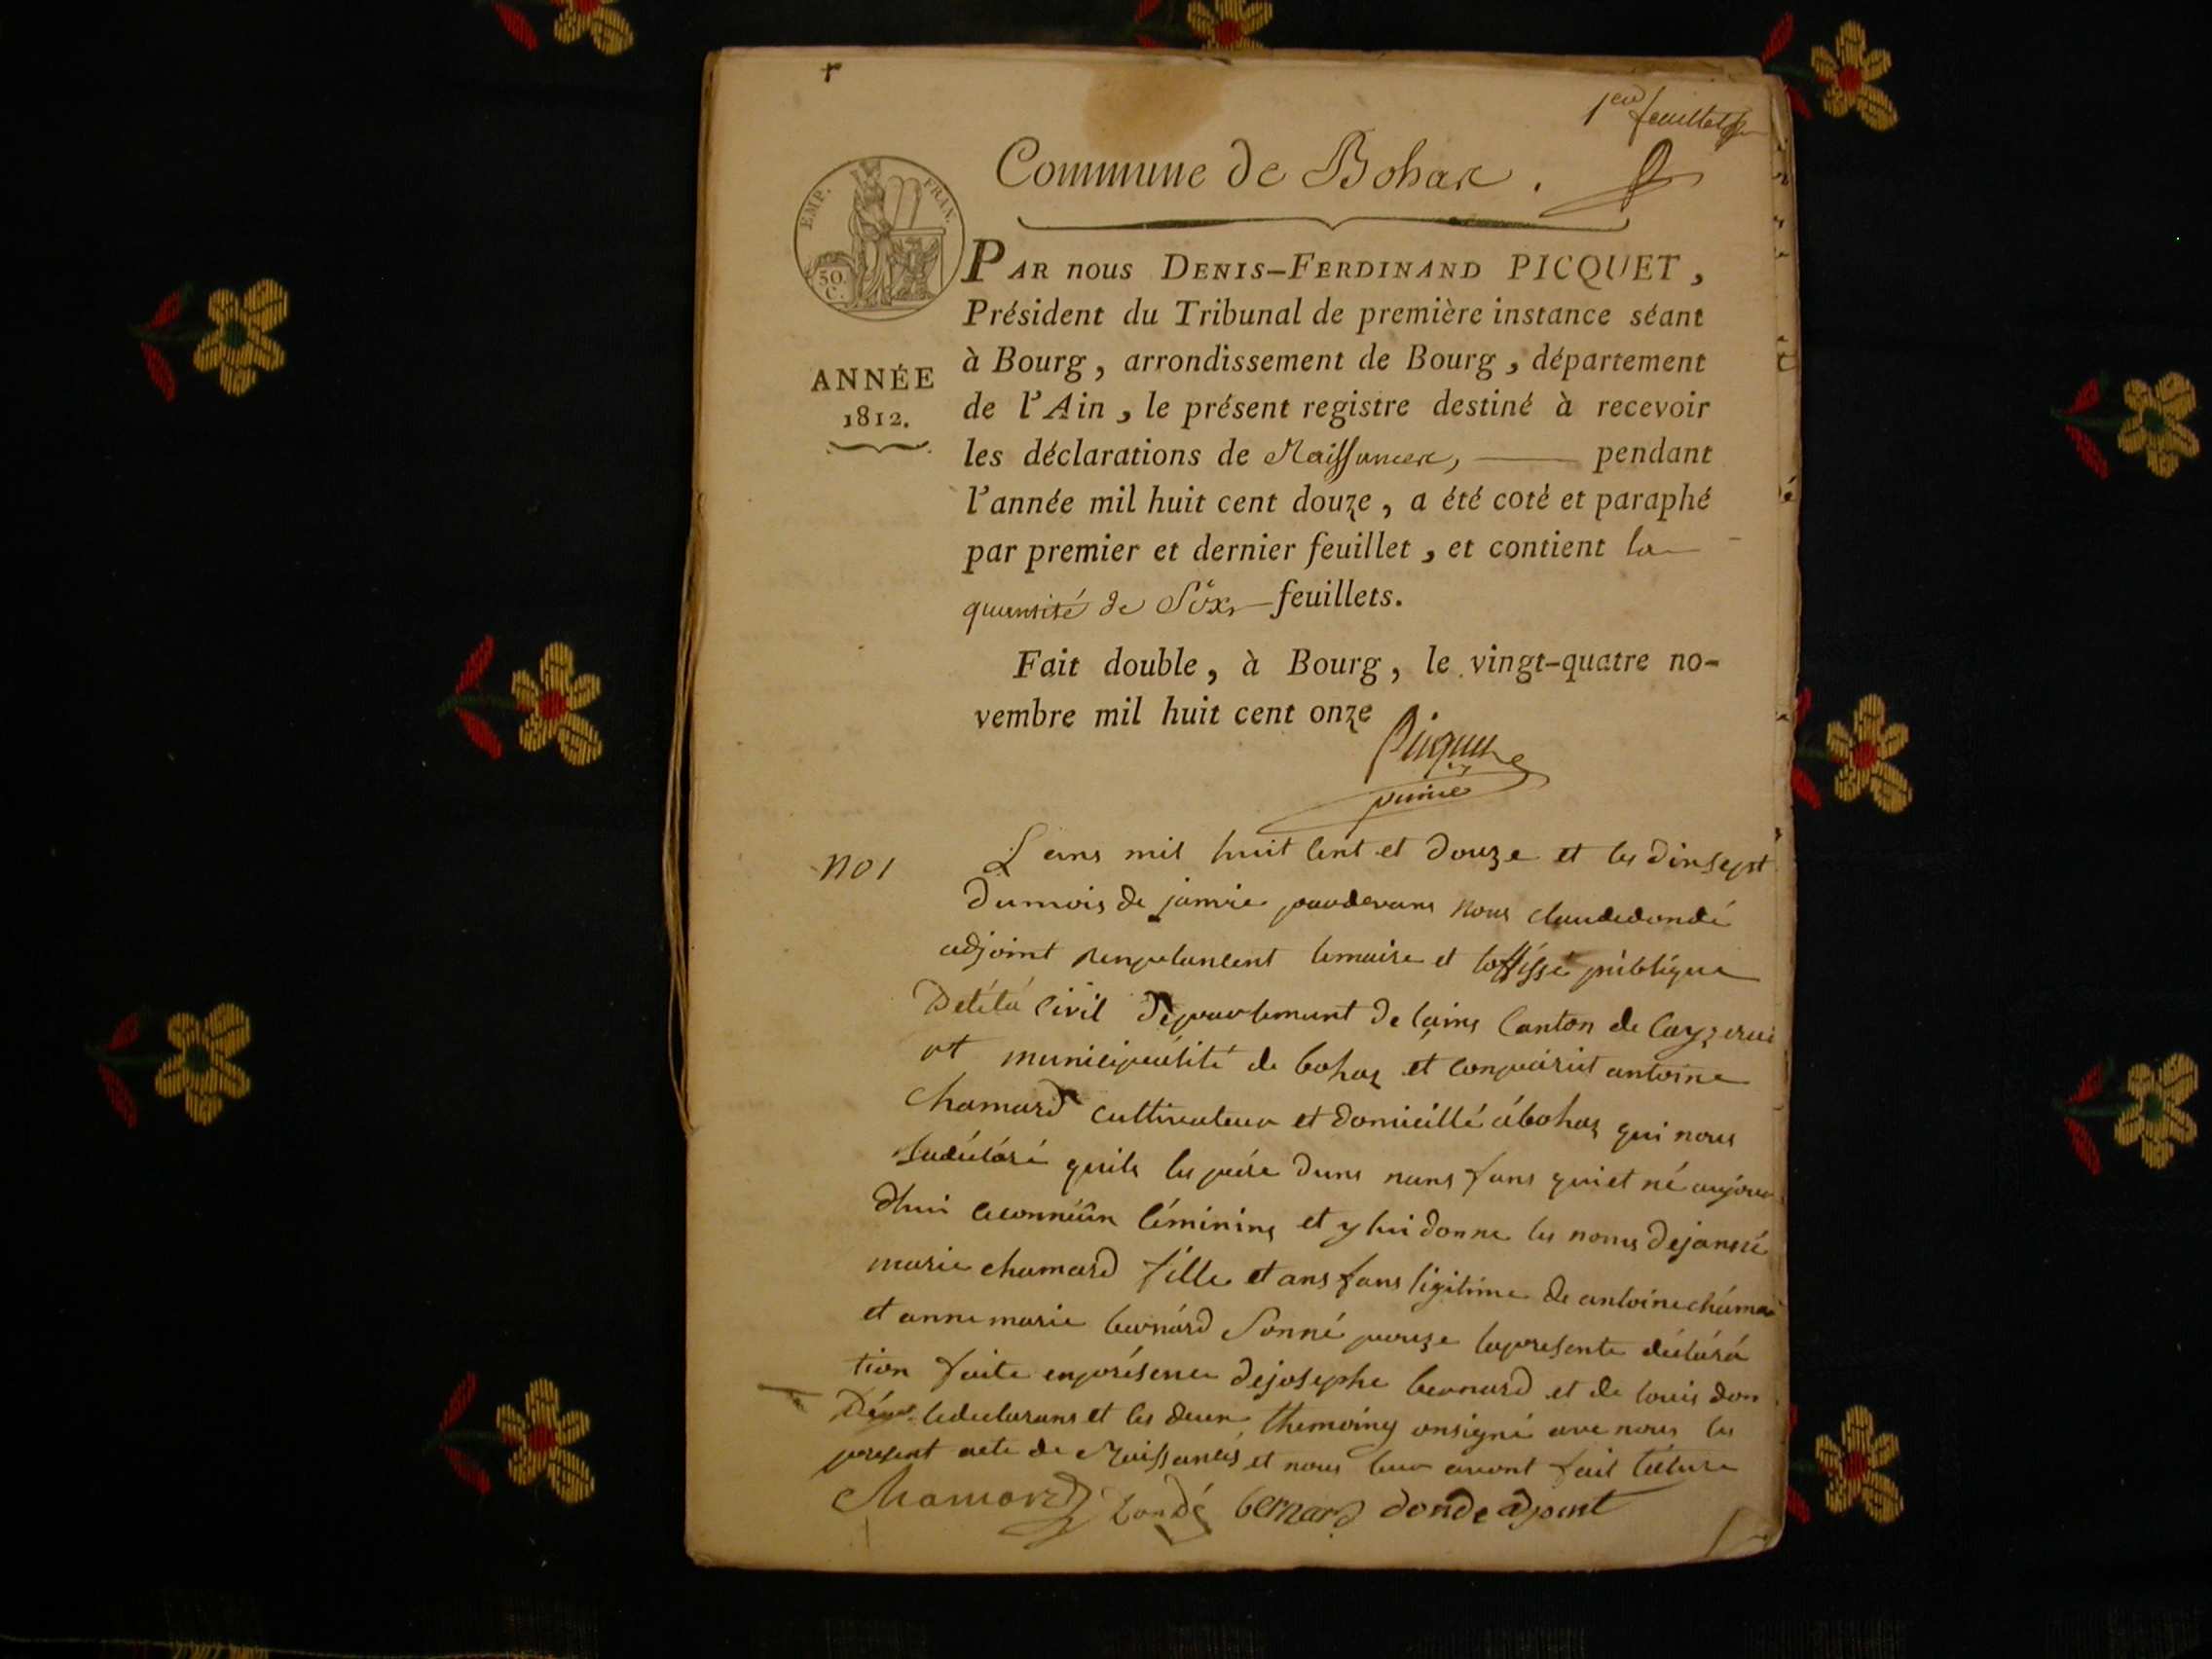 1er feuillet
Commune de Bohas.
EMP. FRAN.
50. C.
ANNÉE
1812.
PAR nous DENIS-FERDINAND PICQUET,
Président du Tribunal de première instance séant
à Bourg, arrondissement de Bourg, département
de l'Ain, le présent registre destiné à recevoir
les déclarations de Naissances, — pendant
l'année mil huit cent douze, a été coté et paraphé
par premier et dernier feuillet, et contient la
quantité de Six feuillets.
Fait double, à Bourg, le vingt-quatre no-
vembre mil huit cent onze
Picquet
no 1
L ans mil huit cent et douze et les dinsept
du mois de janvie pardevans nous claude dondé
adjoint remplancent lemaire et loffissié publique
Detéta civil Département de lains Canton de Ceyzeriat
et municipalité de bohas et conparut antoine
chamard cultivateur et domicillié a bohas qui nous
adéclaré quils les père duns nans fans qui et né aujour
dhui féminins et y lui donne les noms de janne
marie chamard fille et ans fans ligitime de antoine chamar
et anne marie bernard Sonné laprésente déclara
tion faite enprésence dejosephe bernard et de louis don
dé ledeclarans et les deux themoins onsigné ave nous les
present acte de Naissances et nous leur avont fait lecture
Chamard dondé bernard donde adjoint